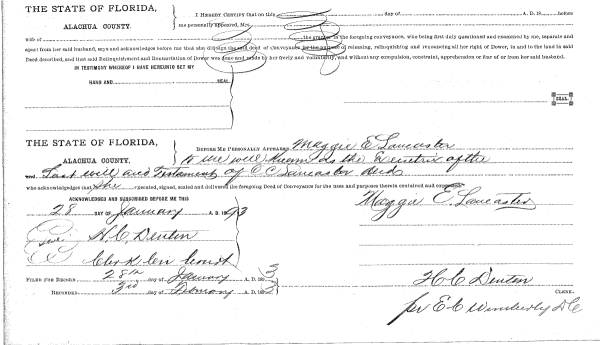 THE STATE OF FLORIDA,
ALACHUA COUNTY.
I HEREBY CERTIFY that on this day of A. D. 18 before
me personally appeared, Mrs.
wife of the grantor in the foregoing conveyance, who being first duly questioned and examined by me, separate and
apart from her said husband, says and acknowledges before me that she did sign the said deed of Conveyance for the purpose of releasing, relinquishing and renouncing all her right of Dower, in and to the land in said
Deed described, and that said Relinquishment and Renunciation of Dower was done and made by her freely and voluntarily, and without any compulsion, constraint, apprehension or fear of or from her said husband.
IN TESTIMONY WHEREOF I HAVE HEREUNTO SET MY
HAND AND SEAL
SEAL
THE STATE OF FLORIDA,
ALACHUA COUNTY.
BEFORE ME PERSONALLY APPEARED Maggie E Lancaster
to me well known as the Executrix of the
and Last will and Testament of C C Lancaster decd
who acknowledges that She executed, signed, sealed and delivered the foregoing Deed of Conveyance for the uses and purposes therein contained and
ACKNOWLEDGED AND SUBSCRIBED BEFORE ME THIS
28 DAY OF January A. D. 1893
Maggie E. Lancaster
H. C. Denton
Clerk Cir Court
FILED FOR RECORD 28th day of January A. D. 1893
RECORDED 3rd day of A. D. 1893
H C Denton
CLERK.
per E C Wimberly D C